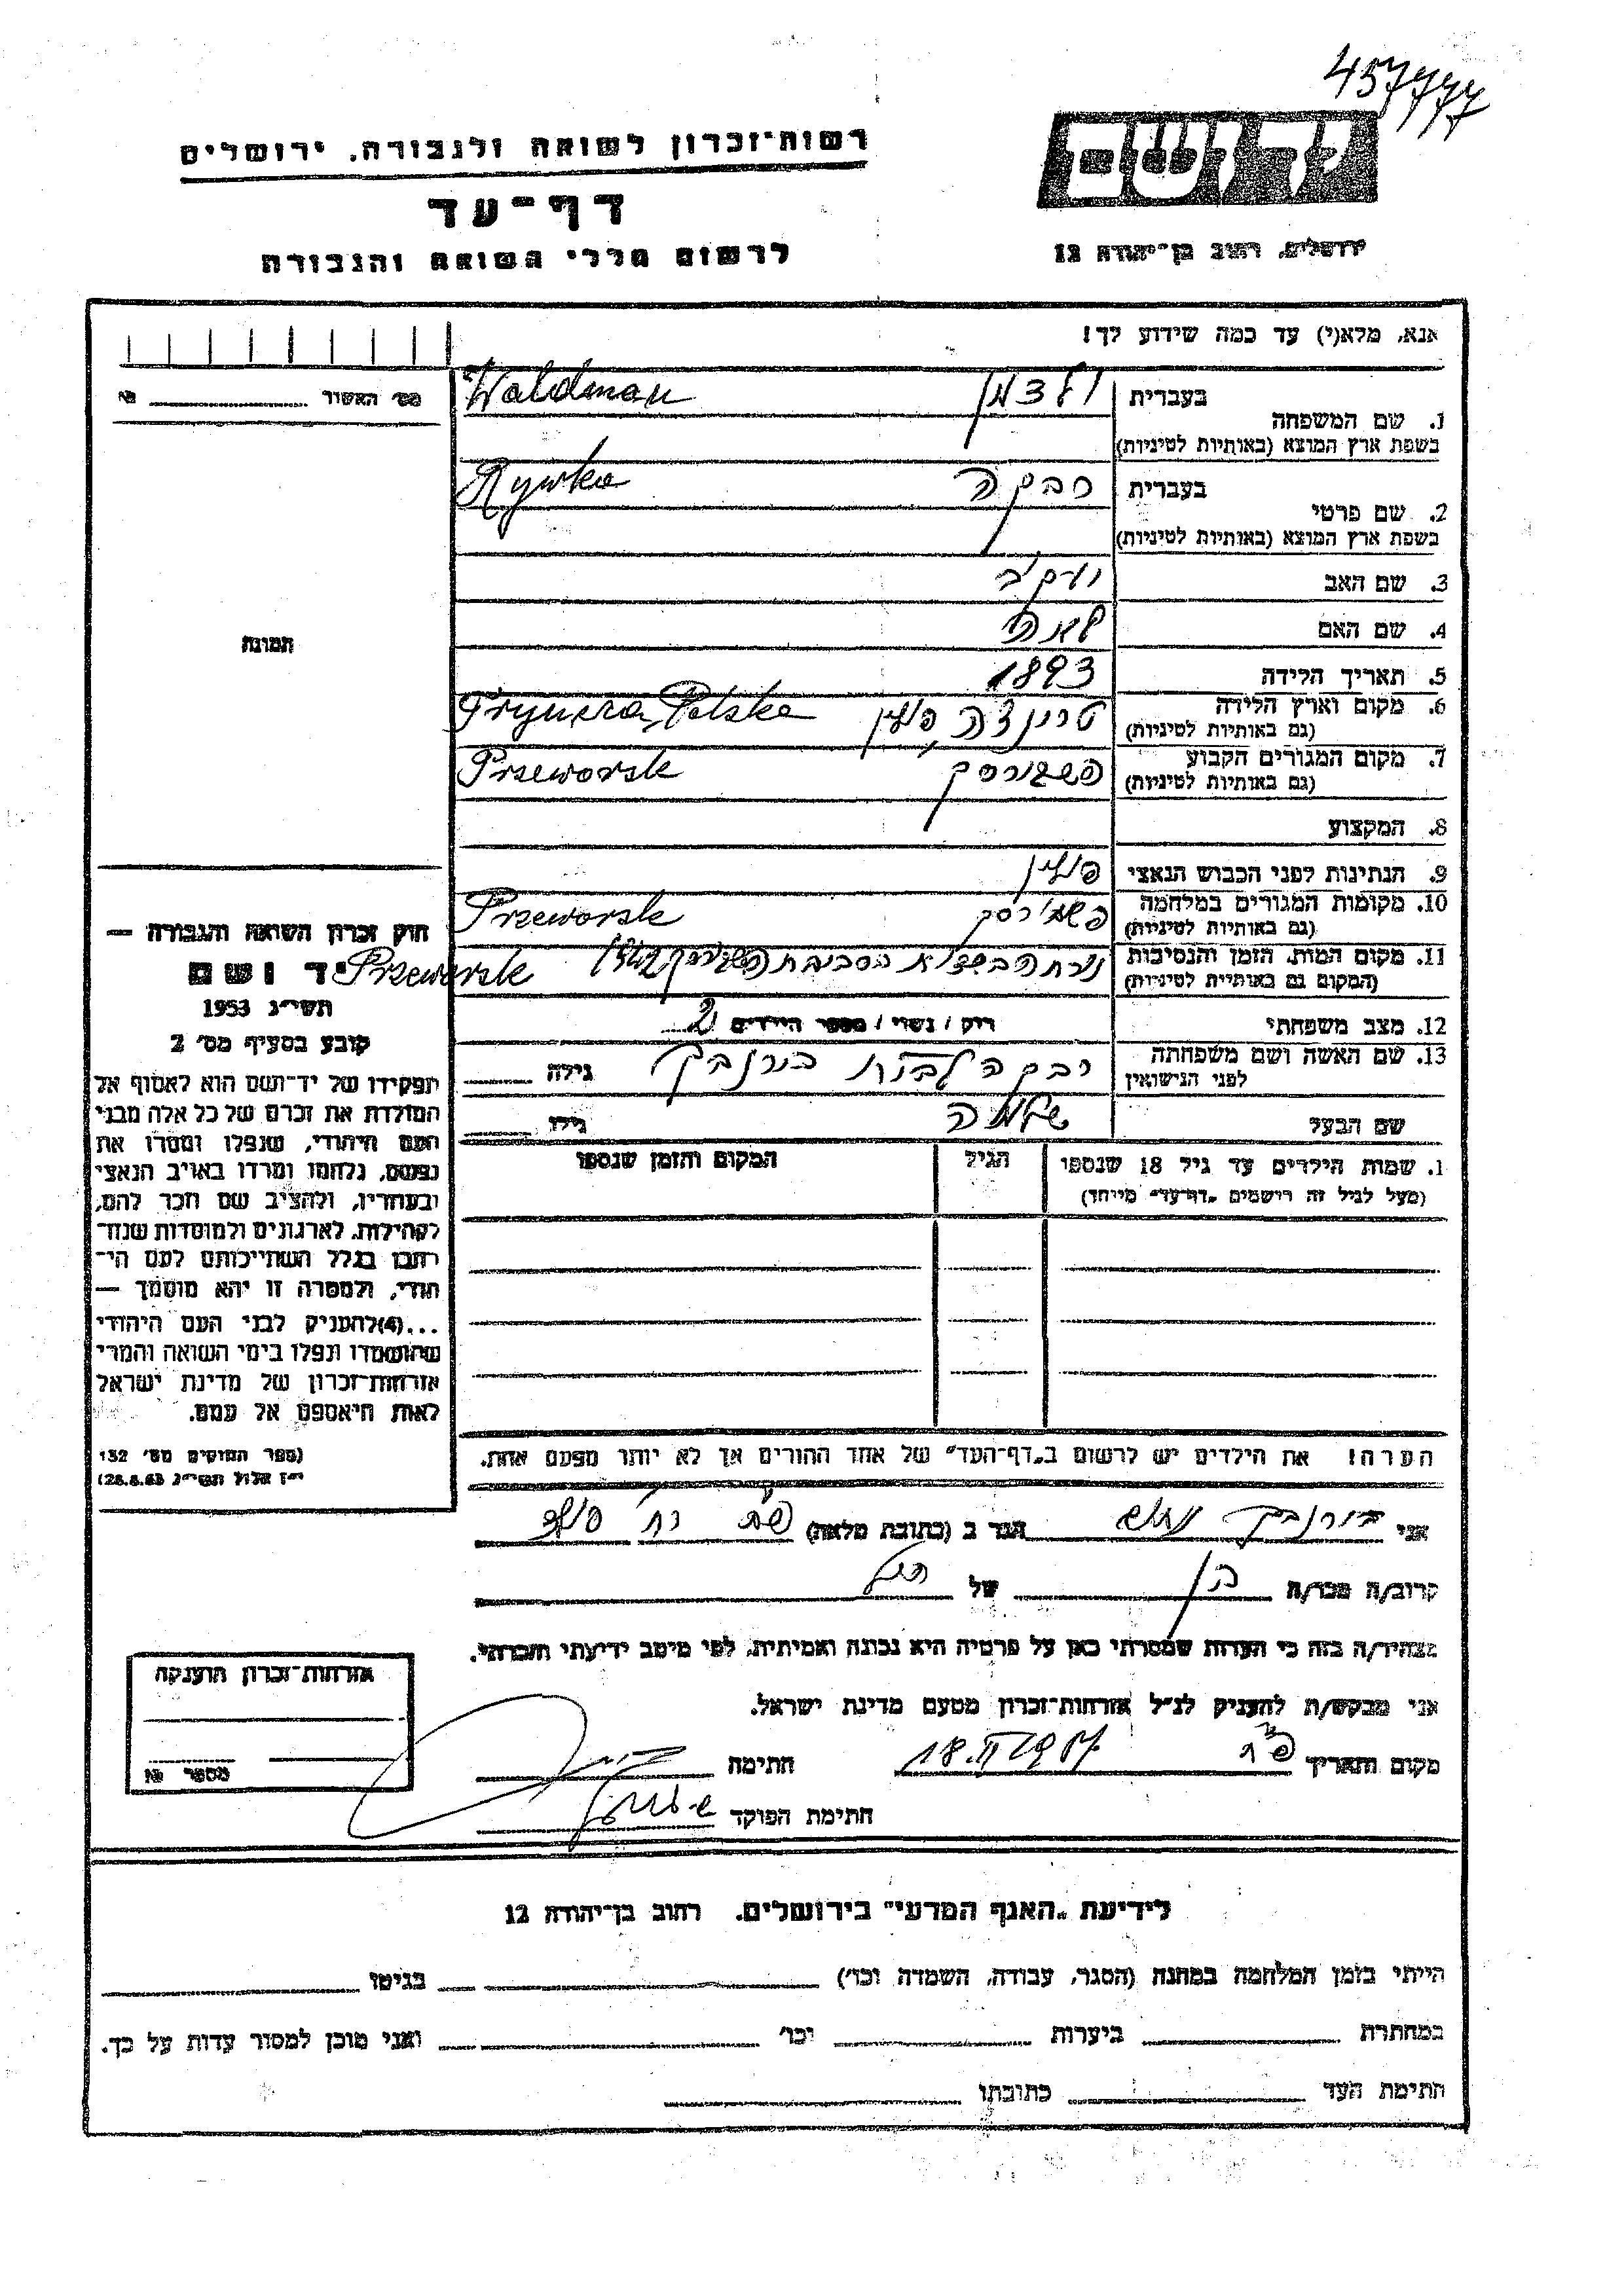 457777
רשות־זכרון לשואה ולגבורה, ירושלים
יד ושם
דף־עד
לרשום חללי השואה והגבורה
ירושלים, רחוב בן־יהודה 12
אנא, מלא(י) עד כמה שידוע לך!
מס' האשור № 
1. שם המשפחה בעברית ולדמן Waldman
בשפת ארץ המוצא (באותיות לטיניות)
2. שם פרטי בעברית רבקה Rywka
בשפת ארץ המוצא (באותיות לטיניות)
3. שם האב יעקב
4. שם האם לאה
תמונה
5. תאריך הלידה 1893
6. מקום וארץ הלידה טרינצה, פולין Polska
(גם באותיות לטיניות)
7. מקום המגורים הקבוע פשבורסק Przeworsk
(גם באותיות לטיניות)
8. המקצוע
9. הנתינות לפני הכבוש הנאצי פולין
10. מקומות המגורים במלחמה Przeworsk
(גם באותיות לטיניות)
11. מקום המות, הזמן והנסיבות בסביבת Przeworsk
(המקום גם באותיות לטיניות)
12. מצב משפחתי רוק / נשוי / מספר הילדים 2
13. שם האשה ושם משפחתה רבקה לבית בורנבך גילה
לפני הנישואין
שם הבעל שלמה גילו
1. שמות הילדים עד גיל 18 שנספו הגיל המקום והזמן שנספו
(מעל לגיל זה רישמים „דף־עד” מיוחד)
חוק זכרון השואה והגבורה —
יד ושם
תשי״ג 1953
קובע בסעיף מס' 2
תפקידו של יד־ושם הוא לאסוף אל
המולדת את זכרם של כל אלה מבני
העם היהודי, שנפלו ומסרו את
נפשם, נלחמו ומרדו באויב הנאצי
ובעוזריו, ולהציב שם וזכר להם,
לקהילות, לארגונים ולמוסדות שנח־
רבו בגלל השתייכותם לעם הי־
הודי, ולמטרה זו יהא מוסמך —
...(4)להעניק לבני העם היהודי
שהושמדו ונפלו בימי השואה והמרי
אזרחות־זכרון של מדינת ישראל
לאות היאספם אל עמם.
(ספר החוקים מס' 132
י״ז אלול תשי״ג 28.8.53)
הערה! את הילדים יש לרשום ב„דף־העד” של אחד ההורים אך לא יותר מפעם אחת.
אני בורנבך הגר ב (כתובת מלאה)
קרוב/ה מכר/ה של
מצהיר/ה בזה כי העדות שמסרתי כאן על פרטיה היא נכונה ואמיתית, לפי מיטב ידיעתי והכרתי.
אני מבקש/ת להעניק לנ״ל אזרחות־זכרון מטעם מדינת ישראל.
מקום ותאריך פ״ת 18.II 1957 חתימה
חתימת הפוקד
אזרחות־זכרון הוענקה
מספר №
לידיעת „האגף המדעי” בירושלים, רחוב בן־יהודה 12
הייתי בזמן המלחמה במחנה (הסגר, עבודה, השמדה וכו') בגיטו
במחתרת ביערות וכו' ואני מוכן למסור עדות על כך.
חתימת העד כתובתו